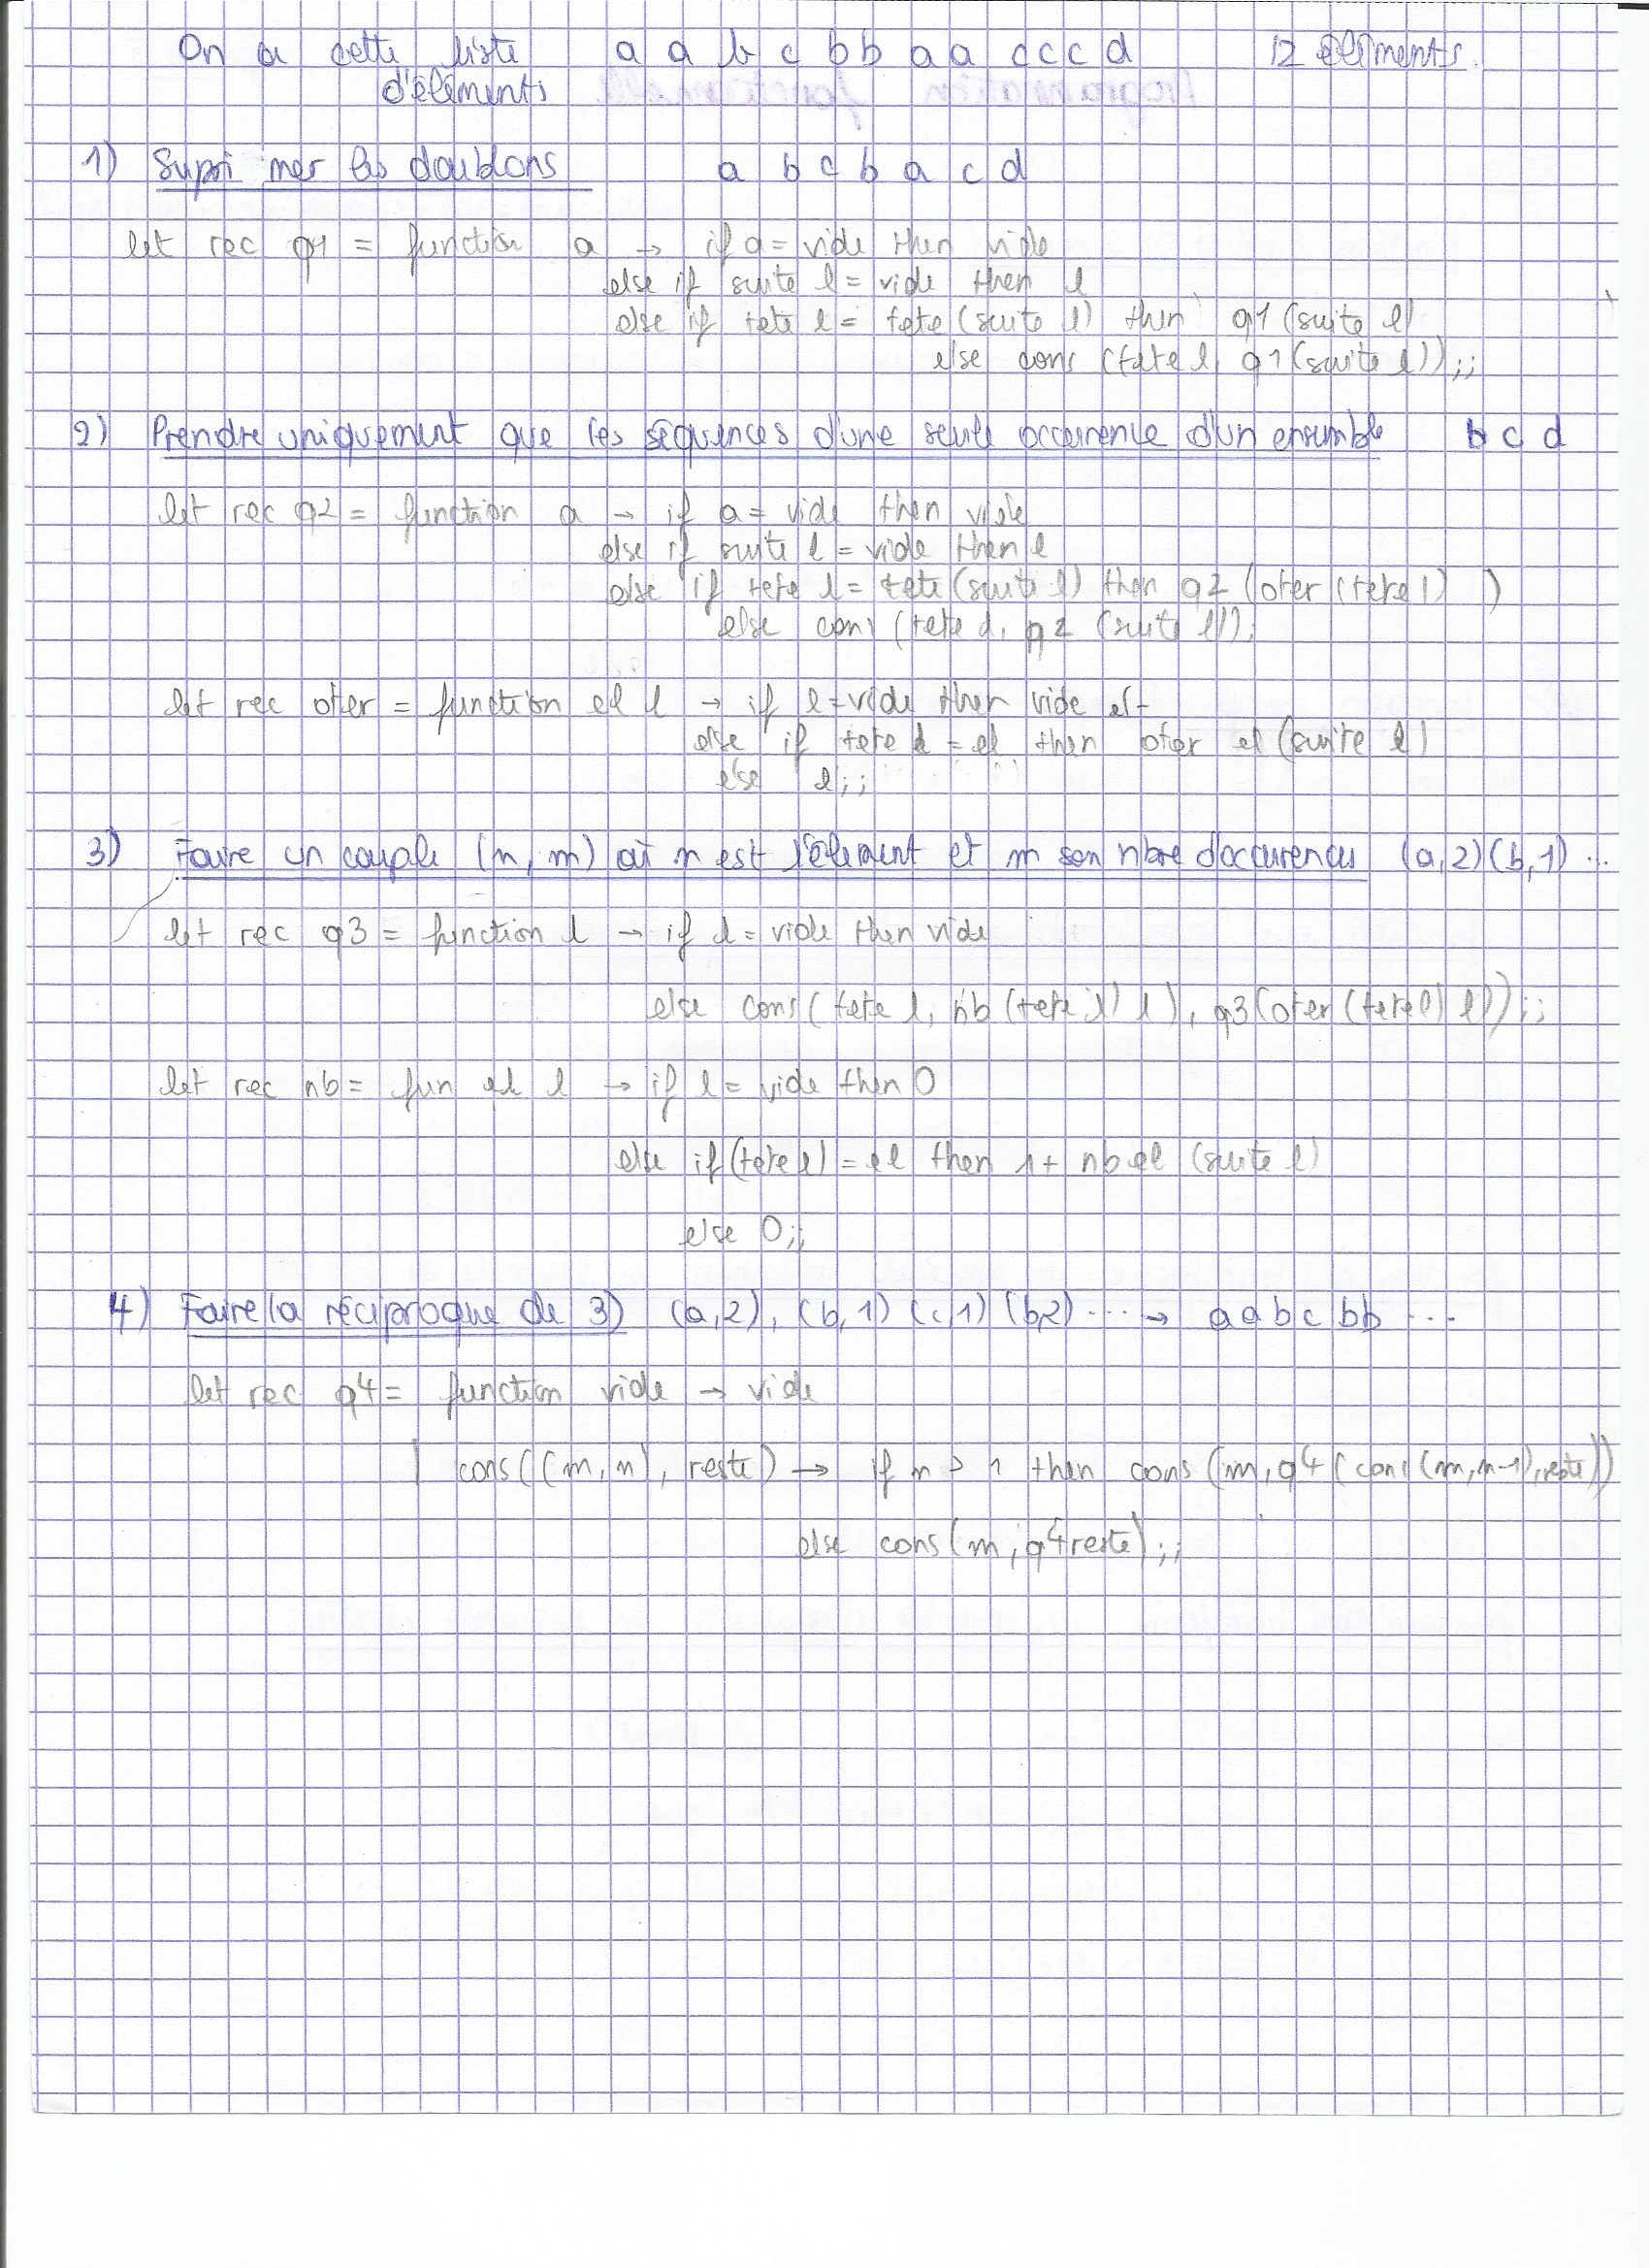 On a cette liste a a b c b b a a c c c d 12 éléments
d'éléments
Programmation fonctionnelle
1) Supprimer les doublons a b c b a c d
let rec q1 = function a → if a = vide then vide
else if suite l = vide then l
else if tete l = tete (suite l) then q1 (suite l)
else cons (tete l, q1 (suite l));;
2) Prendre uniquement que les séquences d'une seule occurrence d'un ensemble b c d
let rec q2 = function a → if a = vide then vide
else if suite l = vide then l
else if tete l = tete (suite l) then q2 (oter (tete l) )
else cons (tete l, q2 (suite l));
let rec oter = function el l → if l = vide then vide el
else if tete l = el then oter el (suite l)
else l;;
3) Faire un couple (n, m) où n est l'élément et m son nbre d'occurences (a,2)(b,1) ...
let rec q3 = function l → if l = vide then vide
else cons( tete l, nb (tete l) l ), q3(oter (tete l) l));;
let rec nb = fun el l → if l = vide then 0
else if (tete l) = el then 1 + nb el (suite l)
else 0;;
4) Faire la réciproque de 3) (a,2), (b,1) (c,1) (b,2) .... → a a b c b b ...
let rec q4 = function vide → vide
| cons((m, n), reste) → if n > 1 then cons (m, q4 ( cons (m, n-1), reste))
else cons(m, q4 reste);;